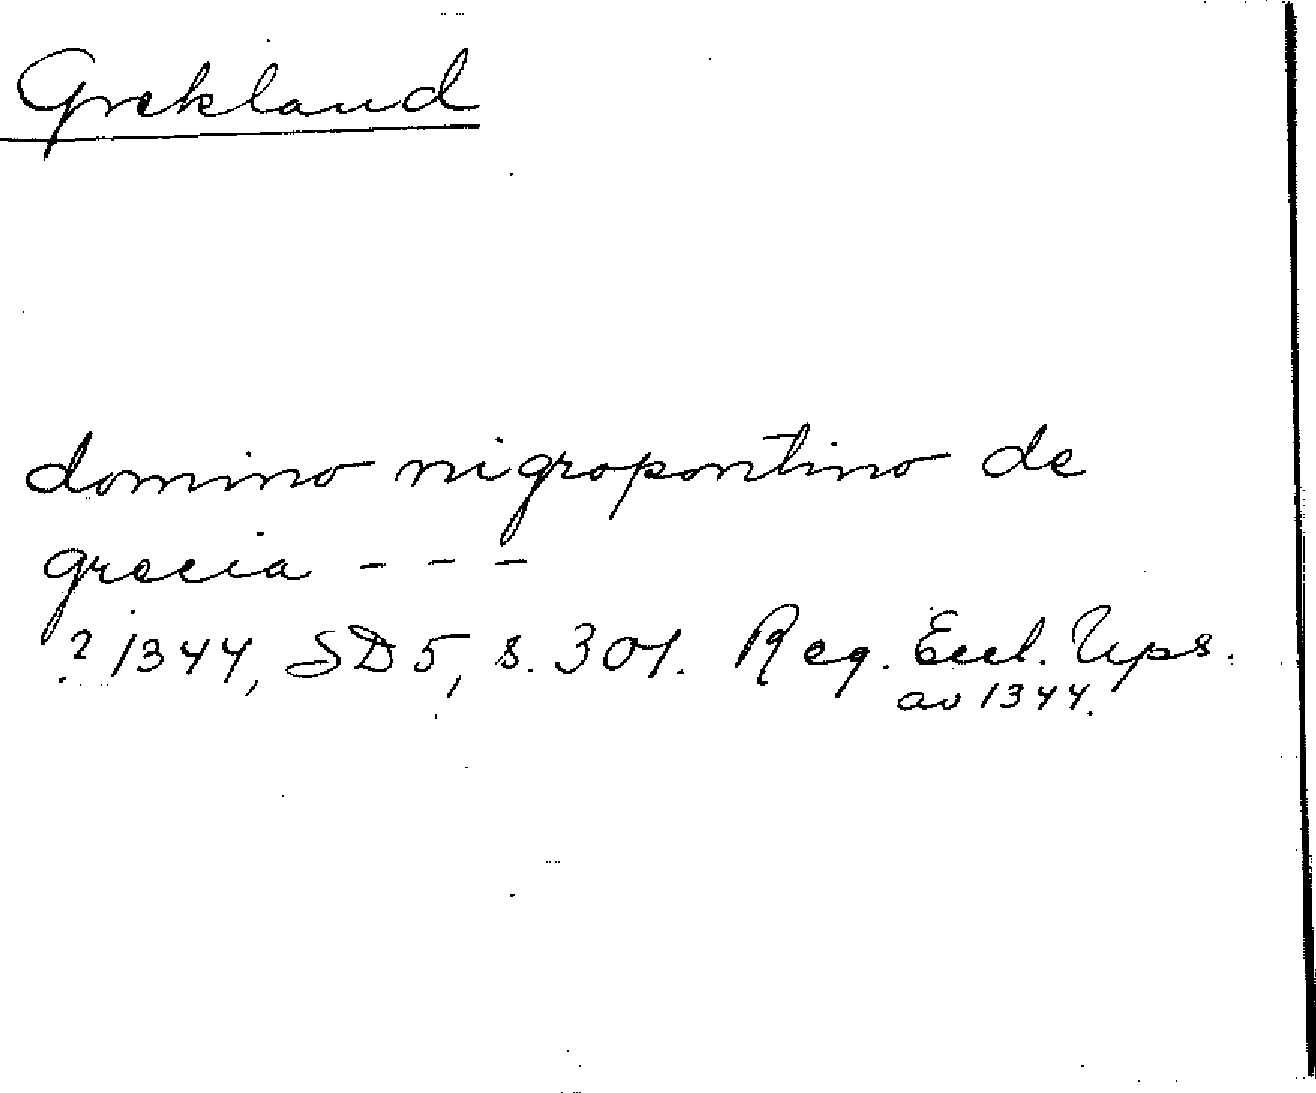 Grekland
domino nigropontino de
grecia - - -
? 1344, SD 5, s. 301. Reg. Eccl. Ups.
av 1344.